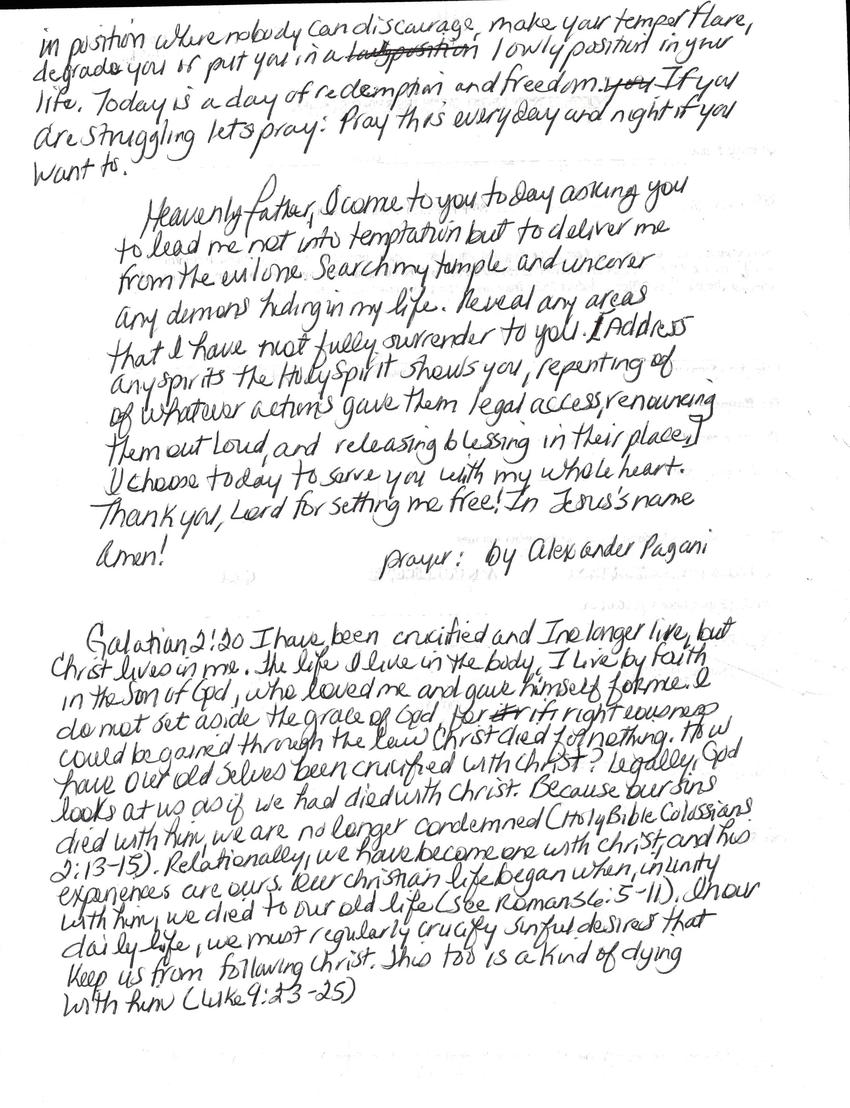 in position where nobody can discourage, make your temper flare,
degrade you or put you in a lowly position in your
life. Today is a day of redemption and freedom. you If you
are struggling lets pray: Pray this everyday and night if you
want to.
Heavenly father, I come to you today asking you
to lead me not into temptation but to deliver me
from the evil one. Search my temple and uncover
any demons hiding in my life. Reveal any areas
that I have not fully surrender to you. [Address
any spirits the Holy Spirit shows you, repenting of
of whatever actions gave them legal access, renouncing
them out loud, and releasing blessing in their place.]
I choose today to serve you with my whole heart.
Thank you, Lord for setting me free! In Jesus's name
Amen!
prayer: by Alexander Pagani
Galatian 2:20 I have been crucified and I no longer live, but
Christ lives in me. The life I live in the body, I live by faith
in the Son of God, who loved me and gave himself for me. I
do not set aside the grace of God, for if righteousness
could be gained through the law Christ died for nothing. How
have our old selves been crucified with Christ? Legally, God
looks at us as if we had died with Christ. Because our sins
died with him, we are no longer condemned (Holy Bible Colossians
2:13-15). Relationally, we have become one with christ, and his
experiences are ours. Our christian life began when, in unity
with him, we died to our old life (see Romans 6:5-11). In our
daily life, we must regularly crucify sinful desires that
keep us from following Christ. This too is a kind of dying
with him (Luke 9:23-25)